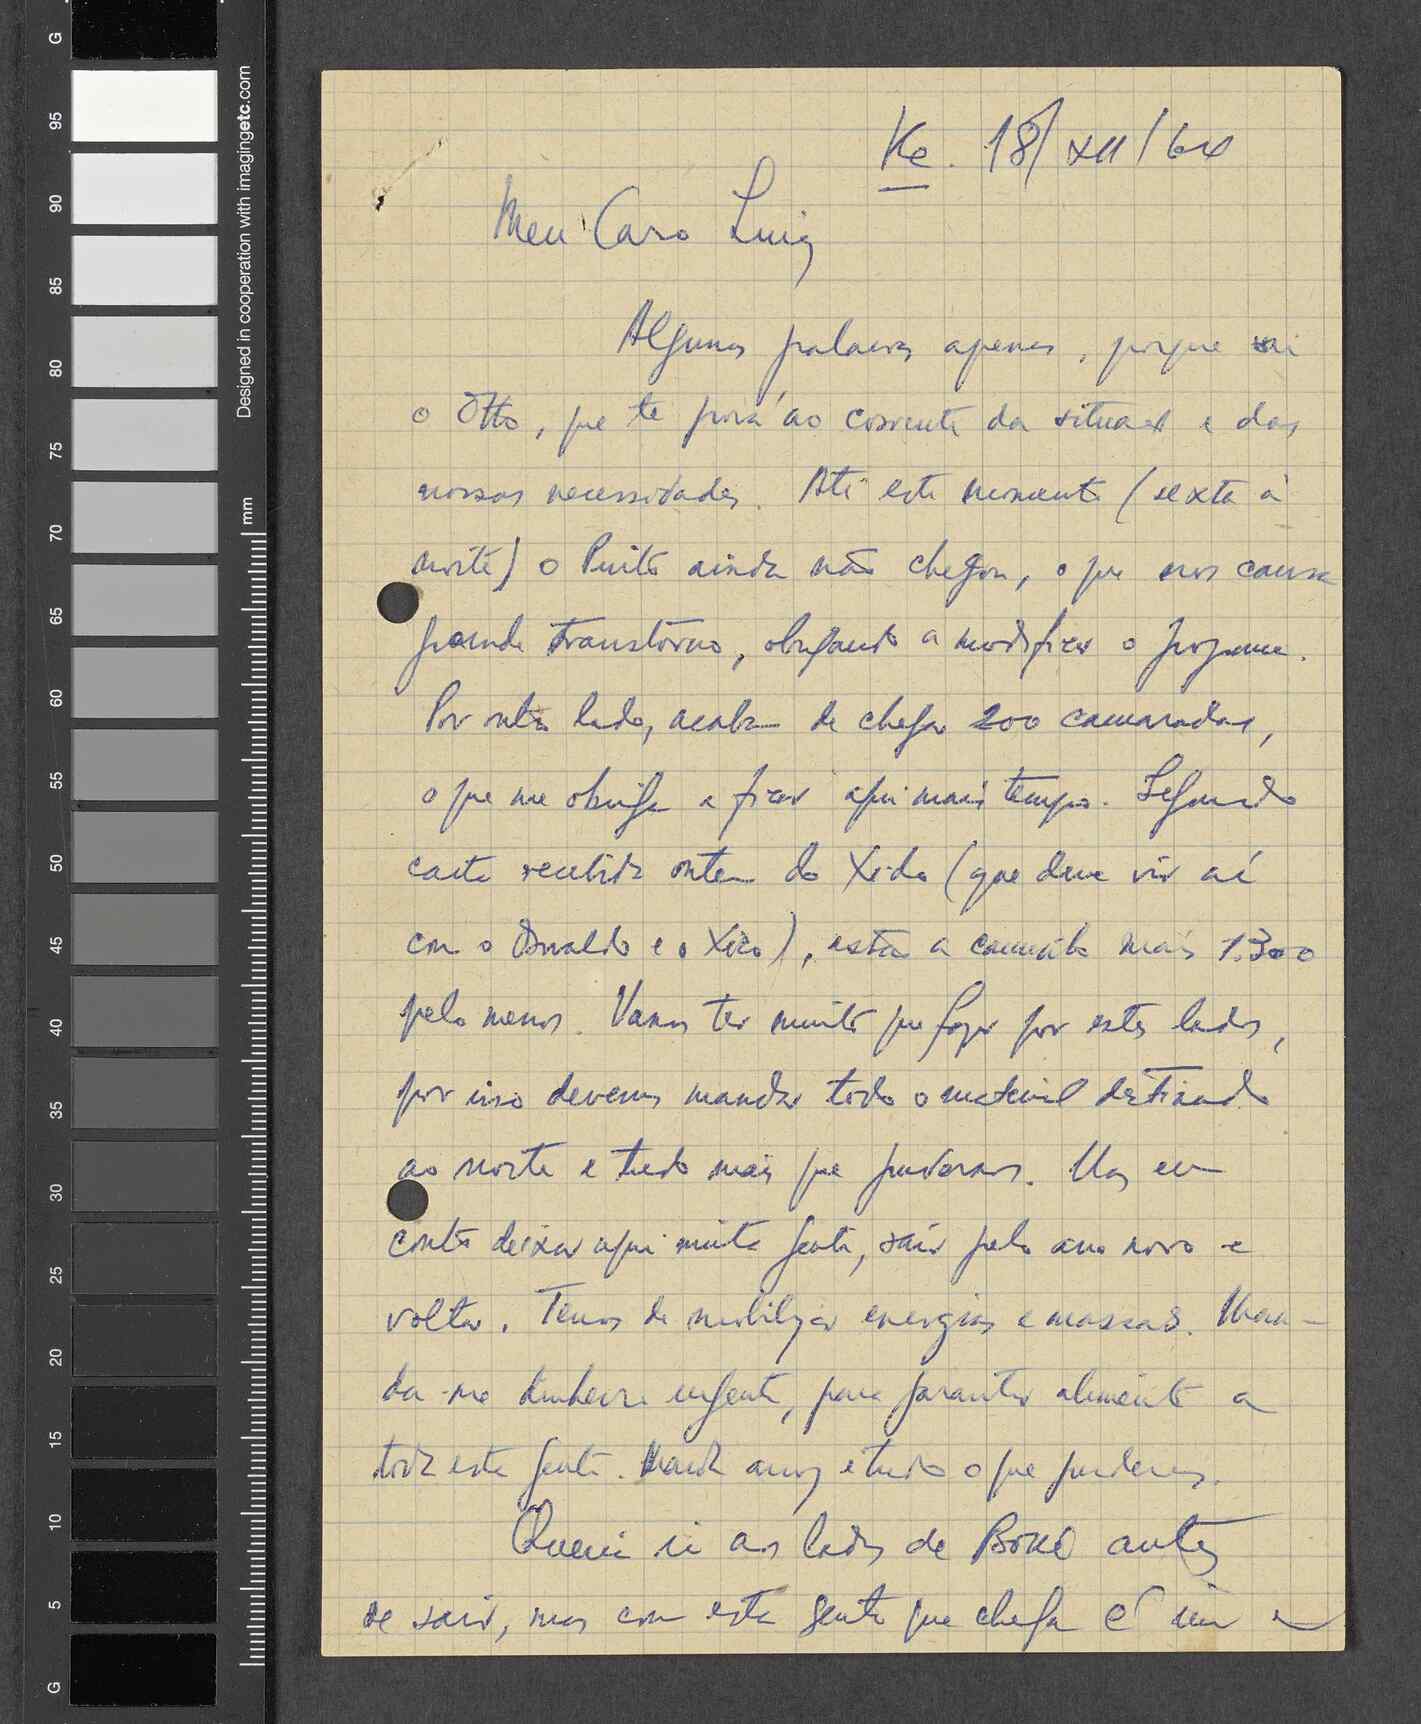 G
95
90
85
80
75
70
65
60
55
50
45
40
35
30
25
20
15
10
5
G
Designed in cooperation with imagingetc.com
mm
Ke. 18/XII/64
Meu Caro Luiz
Algumas palavras apenas, porque vai
o Otto, que te porá ao corrente da situação e das
nossas necessidades. Até este momento (sexta à
noite) o Pinto ainda não chegou, o que nos causa
grande transtorno, obrigando a modificar o programa.
Por outro lado, acabam de chegar 200 camaradas,
o que me obriga a ficar aqui mais tempo. Segundo
carta recebida ontem do Xido (que deve vir aí
com o Osvaldo e o Xico), estão a caminho mais 1.300
pelo menos. Vamos ter muito que fazer por estes lados,
por isso devemos mandar todo o material destinado
ao norte e tudo mais que pudermos. Mas eu
conto deixar aqui muita gente, sair pelo ano novo e
voltar. Temos de mobilizar energias e massas. Man-
da-me dinheiro urgente, para garantir alimento a
toda esta gente. Manda arroz e tudo o que puderes.
Queria ir aos lados de BOKÉ antes
de sair, mas com esta gente que chega é